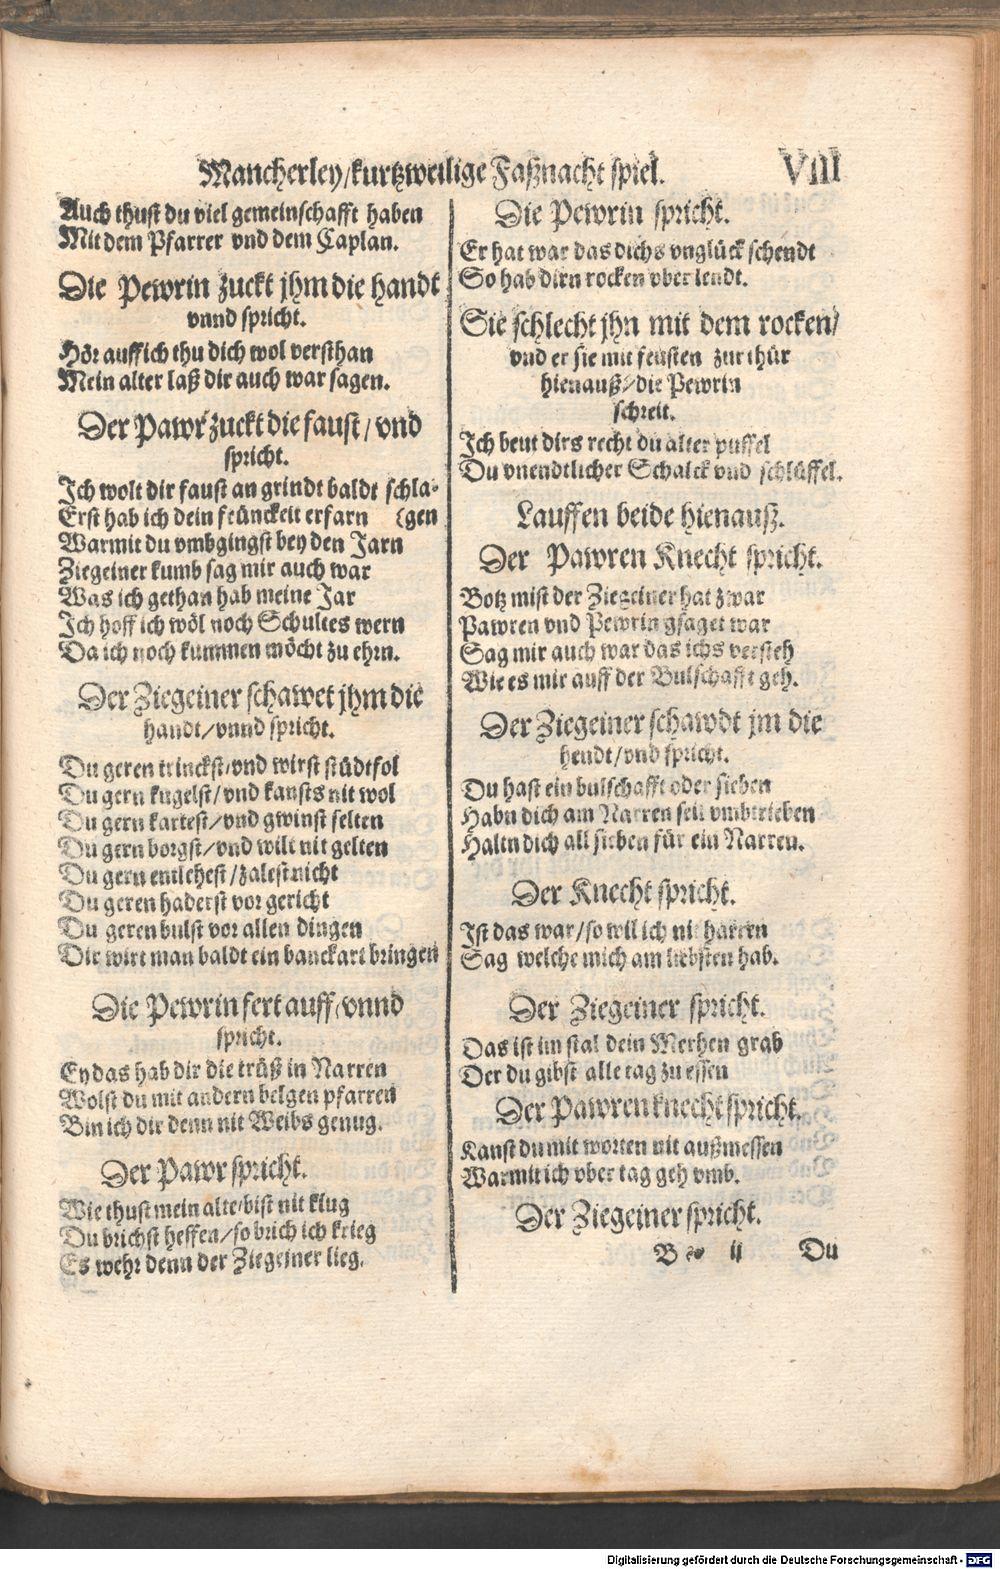 Mancherley/kurtzweilige Faßnacht spiel. VIII
Auch thust du viel gemeinschafft haben
Mit dem Pfarrer vnd dem Caplan.
Die Pewrin zuckt jhm die handt
vnnd spricht.
Hör auff ich thu dich wol versthan
Mein alter laß dir auch war sagen.
Der Pawr zuckt die faust/ vnd
spricht.
Ich wolt dir faust an grindt baldt schla-
Erst hab ich dein feünckeit erfarn (gen
Warmit du vmbgingst bey den Jarn
Ziegeiner kumb sag mir auch war
Was ich gethan hab meine Jar
Ich hoff ich wöl noch Schultes wern
Da ich noch kummen möcht zu ehrn.
Der Ziegeiner schawet jhm die
handt/vnnd spricht.
Du geren trinckst/vnd wirst stüdtfol
Du gern kugelst/vnd kansts nit wol
Du gern kartest/vnd gwinst selten
Du gern borgst/vnd wilt nit gelten
Du gern entlehest/zalest nicht
Du geren haderst vor gericht
Du geren bulst vor allen dingen
Dir wirt man baldt ein banckart bringen
Die Pewrin fert auff/vnnd
spricht.
Ey das hab dir die trüß in Narren
Wolst du mit andern belgen pfarren
Bin ich dir denn nit Weibs genug.
Der Pawr spricht.
Wie thust mein alte/bist nit klug
Du brichst heffen/so brich ich krieg
Es wehr denn der Ziegeiner lieg.
Die Pewrin spricht.
Er hat war das dichs vnglück schendt
So hab dirn rocken vber lendt.
Sie schlecht jhn mit dem rocken/
vnd er sie mit feusten zur thür
hienauß/die Pewrin
schreit.
Ich beut dirs recht du alter puffel
Du vnendtlicher Schalck vnd schlüffel.
Lauffen beide hienauß.
Der Pawren Knecht spricht.
Botz mist der Ziegeiner hat zwar
Pawren vnd Pewrin gsaget war
Sag mir auch war das ichs versteh
Wie es mir auff der Bulschafft geh.
Der Ziegeiner schawdt jm die
hendt/vnd spricht.
Du hast ein bulschafft oder sieben
Habn dich am Narren seil vmbtrieben
Haltn dich all sieben für ein Narren.
Der Knecht spricht.
Ist das war/so wil ich nit harren
Sag welche mich am liebsten hab.
Der Ziegeiner spricht.
Das ist im stal dein Merhen grab
Der du gibst alle tag zu essen
Der Pawren knecht spricht.
Kanst du mit worten nit außmessen
Warmit ich vber tag geh vmb.
Der Ziegeiner spricht.
B ij Du
Digitalisierung gefördert durch die Deutsche Forschungsgemeinschaft - DFG